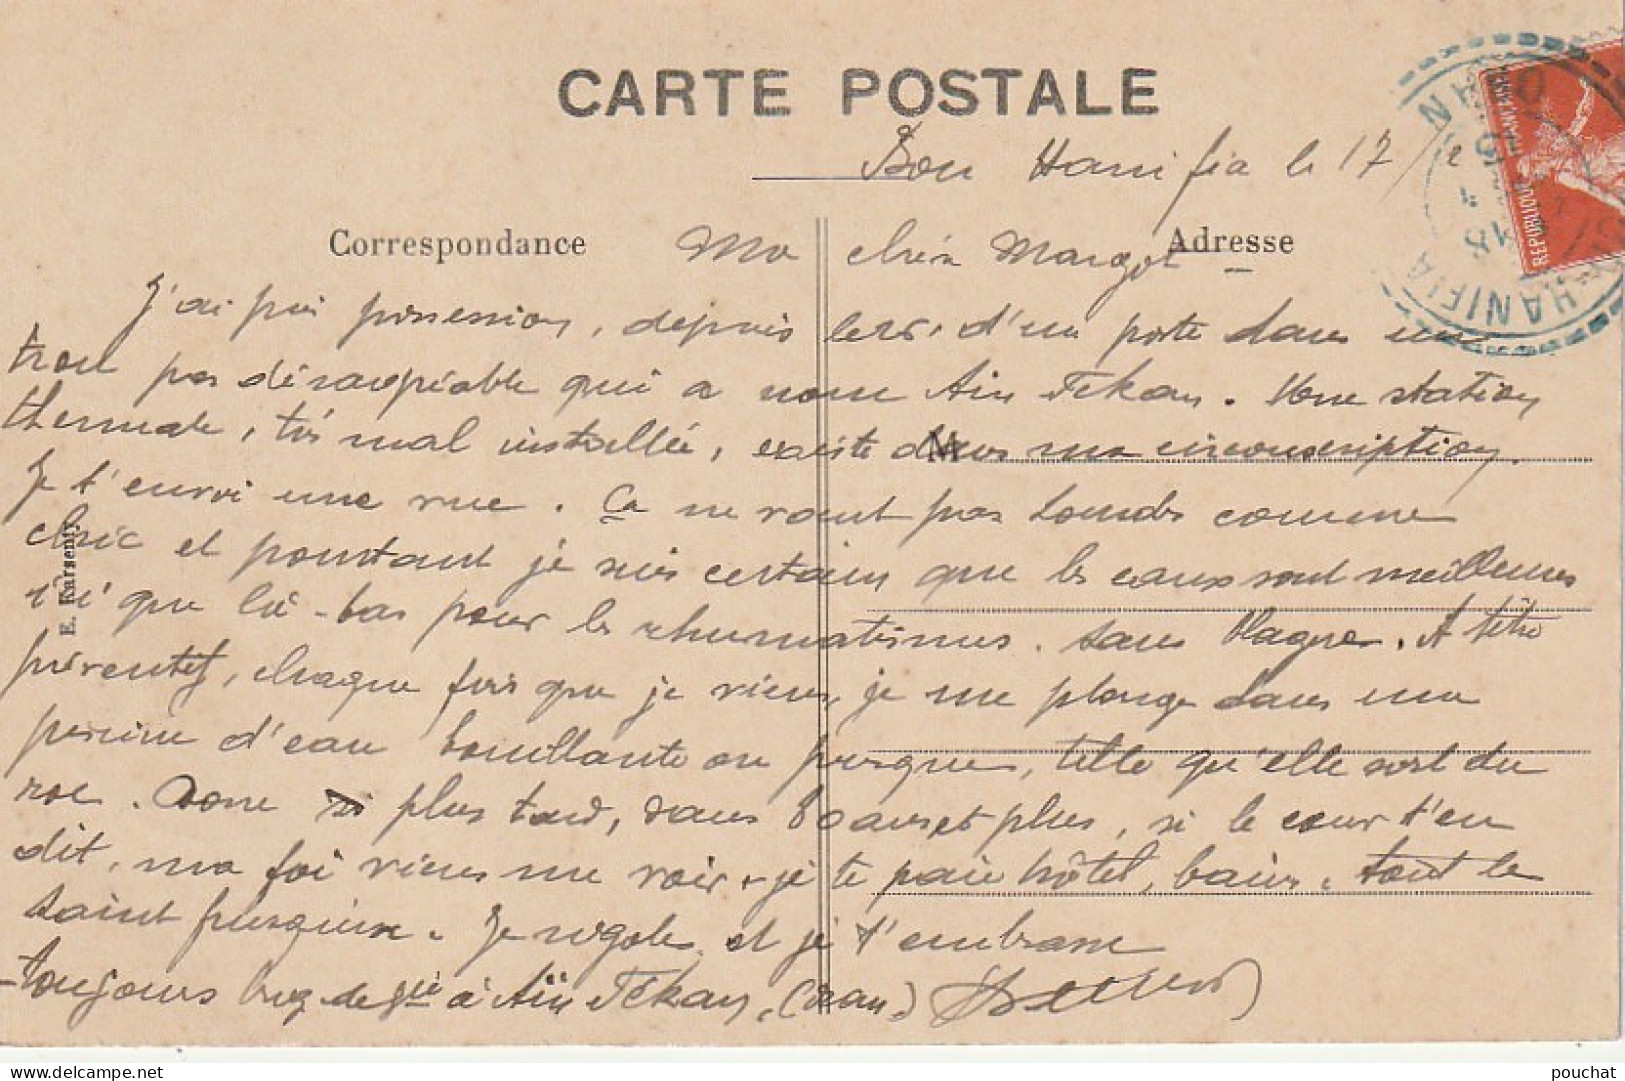 CARTE POSTALE
Bou Hanifia le 17/
Correspondance
Adresse
Ma chère Margot -
J'ai pris possession, depuis hier, d'un poste dans un
trou pas désagréable qui a nom Aïn Tekan. Une station
thermale, très mal installée, existe dans ma circonscription.
M
Je t'envoi une vue. Ça ne vaut pas Lourdes comme
chic et pourtant je suis certain que les eaux sont meilleures
ici que là-bas pour les rhumatismes. Sans blague. A titre
préventif, chaque fois que je viens, je me plonge dans une
piscine d'eau bouillante ou presque, telle qu'elle sort du
roc. Donc plus tard, dans 50 ans et plus, si le cœur t'en
dit, ma foi viens me voir, je te paie hôtel, bains, tout le
saint frusquin. Je rigole, et je t'embrasse
toujours brig. de gie à Aïn Tekan, (Oran)
E. Karsenty
REPUBLIQUE
HANIFIA
ORAN
pouchat